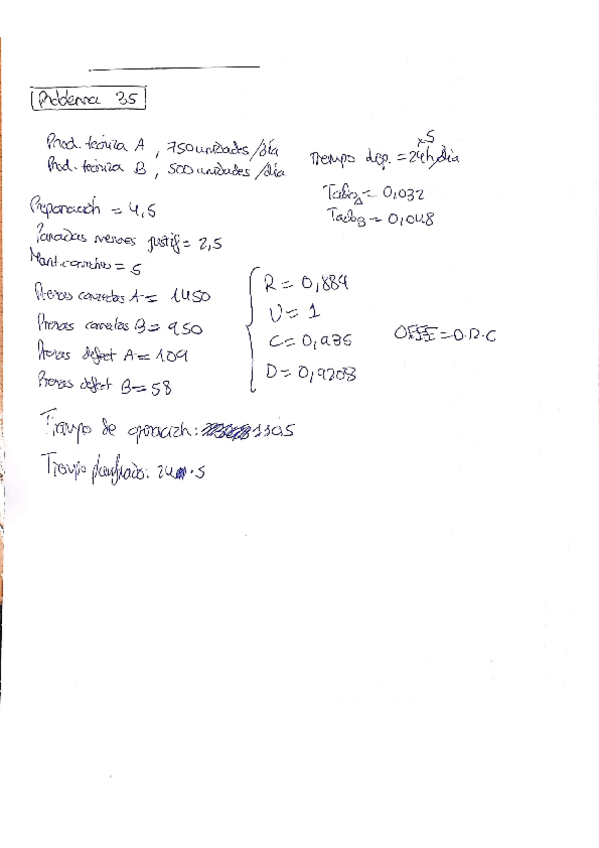 Problema 35
Prod. teórica A, 750 unidades/día
Prod. teórica B, 500 unidades/día
Tiempo disp. = 24h/día x5
Tciclo A = 0,032
Tciclo B = 0,048
Preparación = 4,5
Paradas menores justif = 2,5
Mant. correctivo = 5
Piezas correctas A = 1450
Piezas correctas B = 950
Piezas defect A = 109
Piezas defect B = 58
R = 0,884
U = 1
C = 0,935
D = 0,9208
OEE = D.R.C
Tiempo de operación: 110,5
Tiempo planificado: 24.5